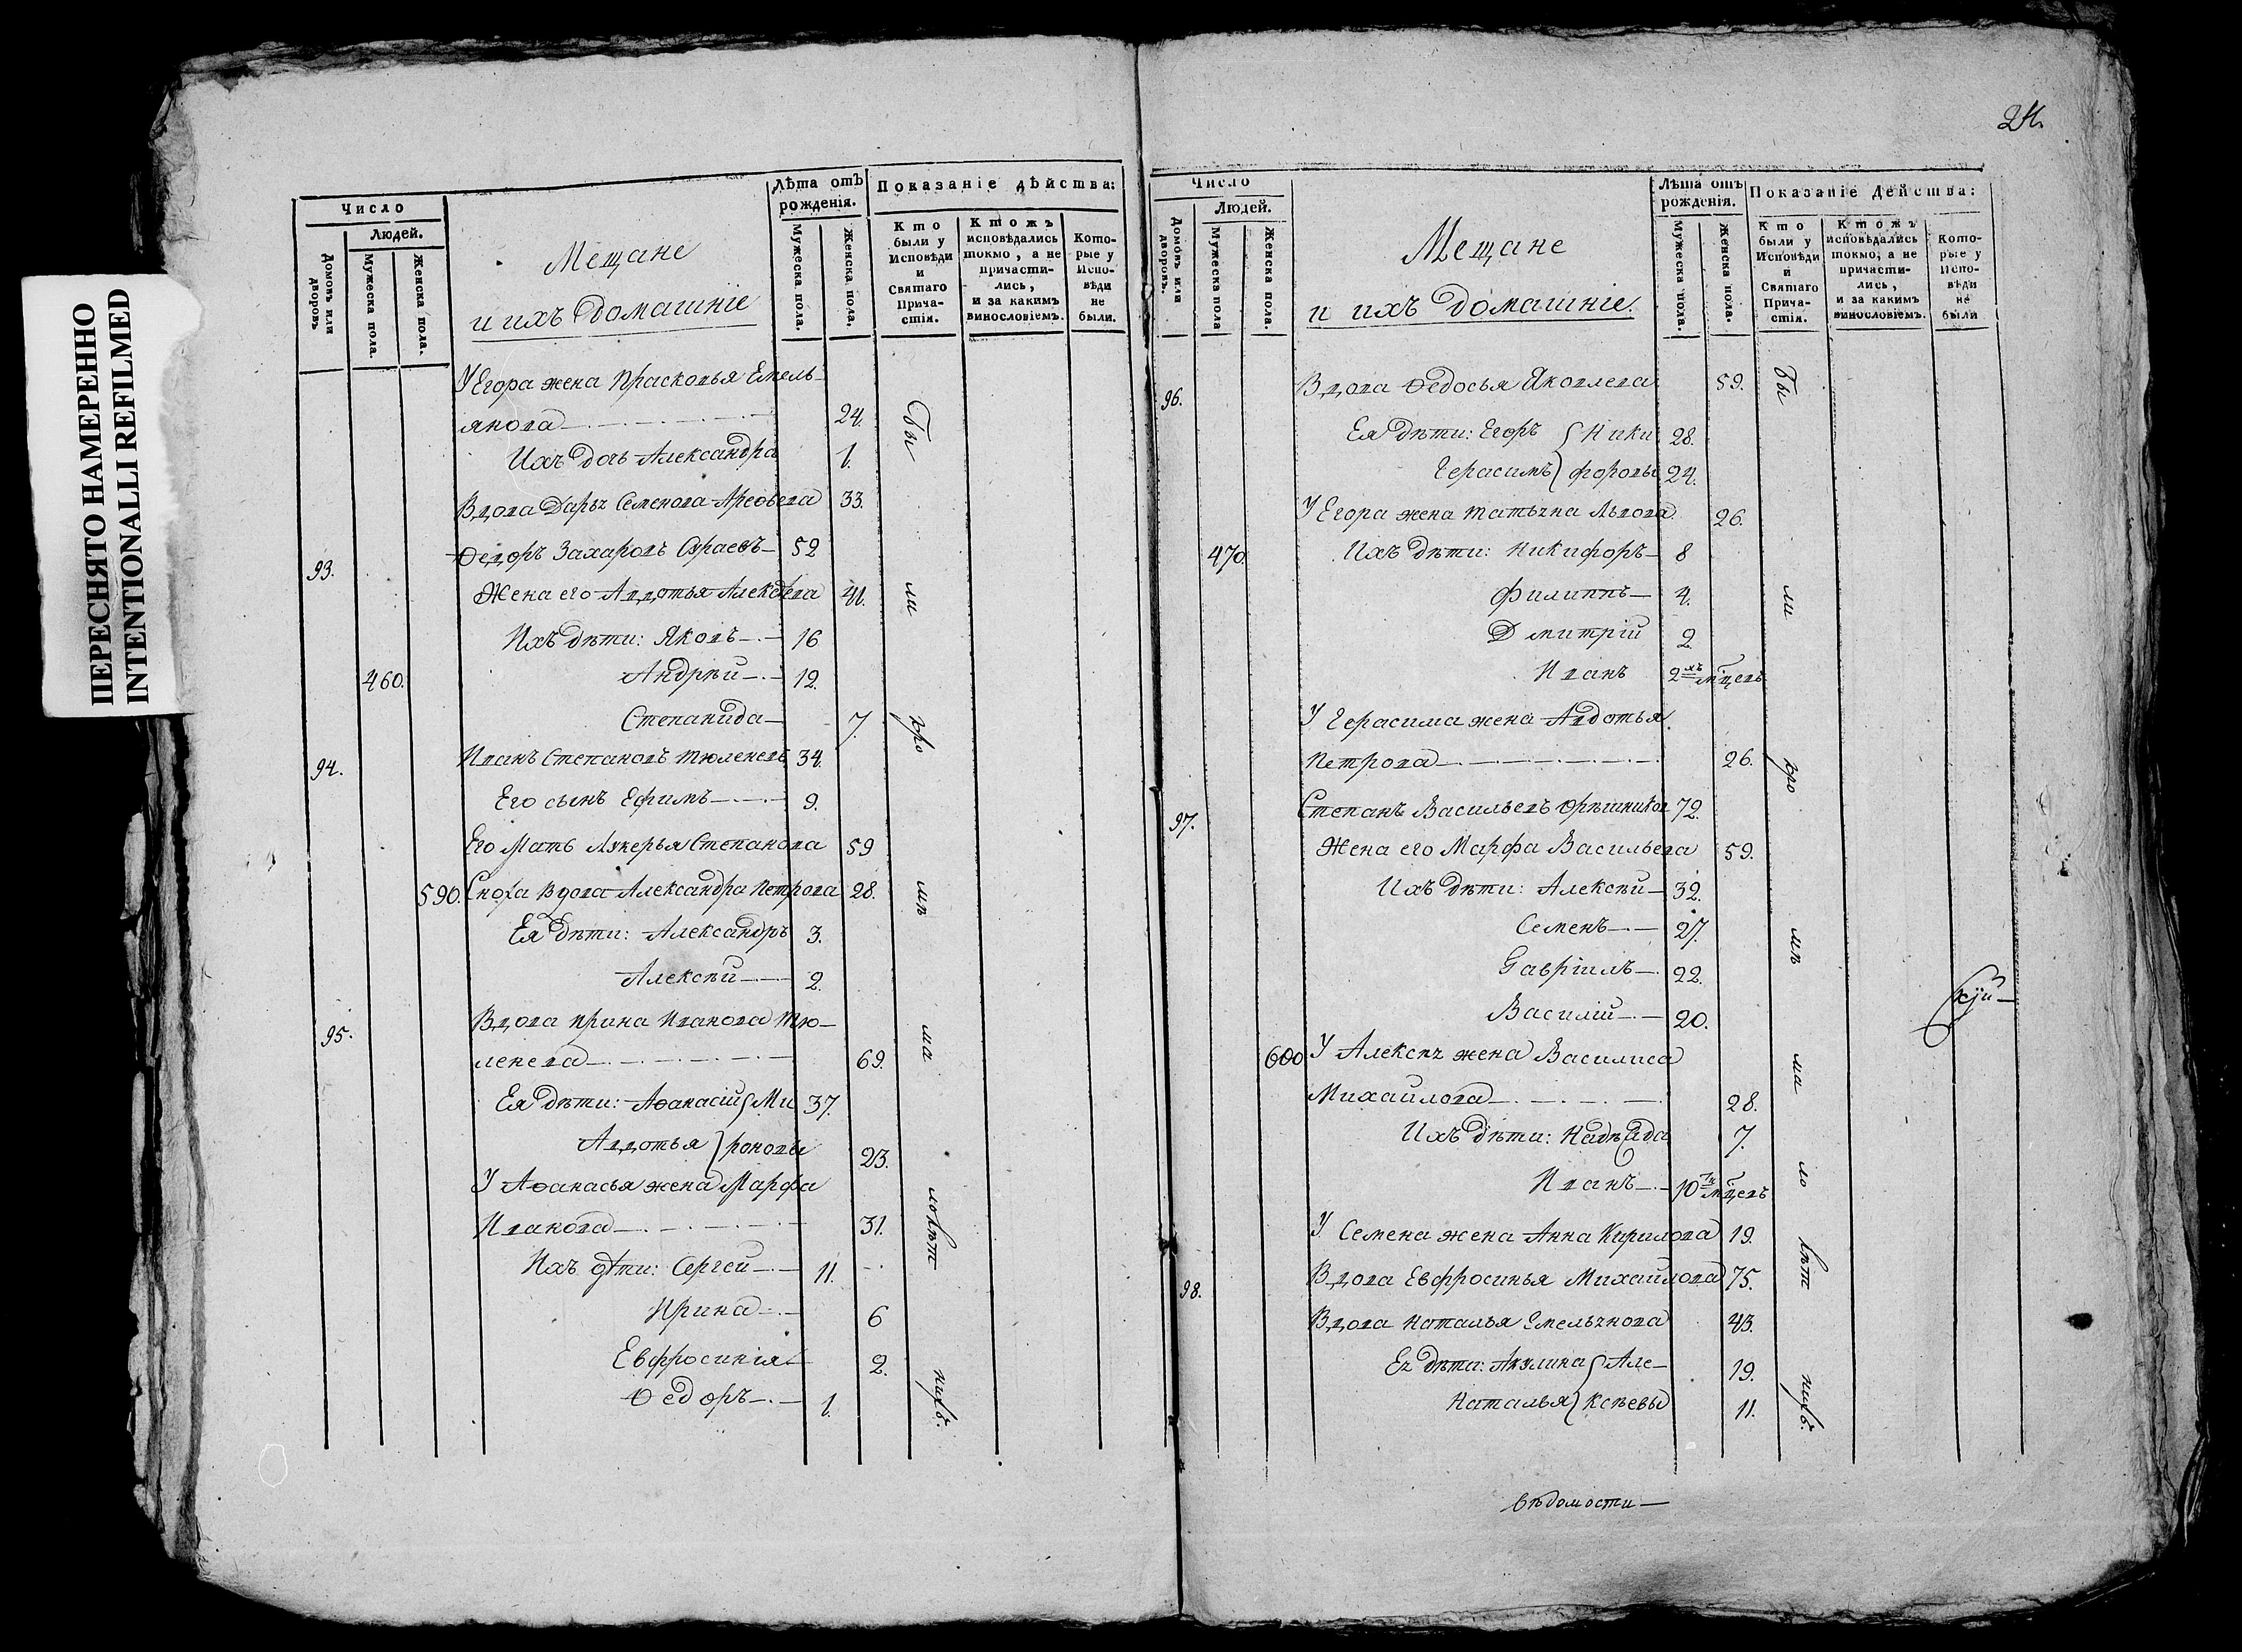 ПЕРЕСНЯТО НАМЕРЕННО
INTENTIONALLI REFILMED
Число
Людей.
Домовъ или дворовъ
Мужеска пола.
Женска пола.
Мещане
и ихъ домашніе
Лѣта отъ рожденія.
Мужеска пола.
Женска пола.
Показаніе дѣйства:
Кто были у Исповѣди и Святаго Причастія.
Ктожъ исповѣдались токмо, а не причастились, и за какимъ винословіемъ.
Которые у Исповѣди не были.
У Егора жена Прасковья Емель-
янова 24.
Ихъ дочь Александра 1.
Вдова Дарья Семенова 33.
93. Федоръ Захаровъ 52
Жена его Авдотья 41.
Ихъ дѣти: Яковъ 16
460. Андрѣй 12.
Степанида 7.
94. Иванъ Степановъ Тюленевъ 34.
Его сынъ Ефимъ 9.
Его Мать Лукерья Степанова 59
590. Сноха Вдова Александра Петрова 28.
Ея дѣти: Александръ 3.
Алексѣй 2.
95. Вдова Ирина Иванова Тю-
ленева 69.
Ея дѣти: Аѳанасій Ми 37.
Авдотья роновы 23.
У Аѳанасья жена Марфа
Иванова 31.
Ихъ дѣти: Сергей 11.
Ирина 6
Евфросинія 2.
Ѳедоръ 1.
Бы
ли
ро
мѣ
ма
лолѣт
нихъ.
24.
Число
Людей.
Домовъ или дворовъ.
Мужеска пола
Женска пола.
Мещане
и ихъ домашніе.
Лѣта отъ рожденія.
Мужеска пола.
Женска пола.
Показаніе действа:
Кто были у Исповѣди и Святаго Причастія.
Ктожъ исповѣдались токмо, а не причастились, и за какимъ винословіемъ.
Которые у Исповѣди не были
96. Вдова Ѳедосья Яковлева 59.
Ея дѣти: Егоръ Ники 28.
Герасимъ форовы 24.
У Егора жена Татьяна Львова 26.
470. Ихъ дѣти: Никифоръ 8
Филиппъ 4.
Дмитрій 2
Иванъ 2 мѣцевъ
У Герасима жена Авдотья
Петрова 26.
97. Степанъ Васильевъ Орѣшников 72.
Жена его Марфа Васильева 59.
Ихъ дѣти: Алексѣй 32.
Семенъ 27.
Гавріилъ 22.
Василій 20.
600 У Алексѣя жена Василиса
Михайлова 28.
Ихъ дѣти: Надежда 7.
Иванъ 10 мѣцевъ
У Семена жена Анна Кирилова 19.
98. Вдова Евфросинья Михайлова 75.
Вдова Наталья Емельянова 43.
Ея дѣти: Акулина Але- 19.
Наталья ксѣевы 11.
Бы
ли
ро
мѣ
ма
ло
лѣт
нихъ.
вѣдомости